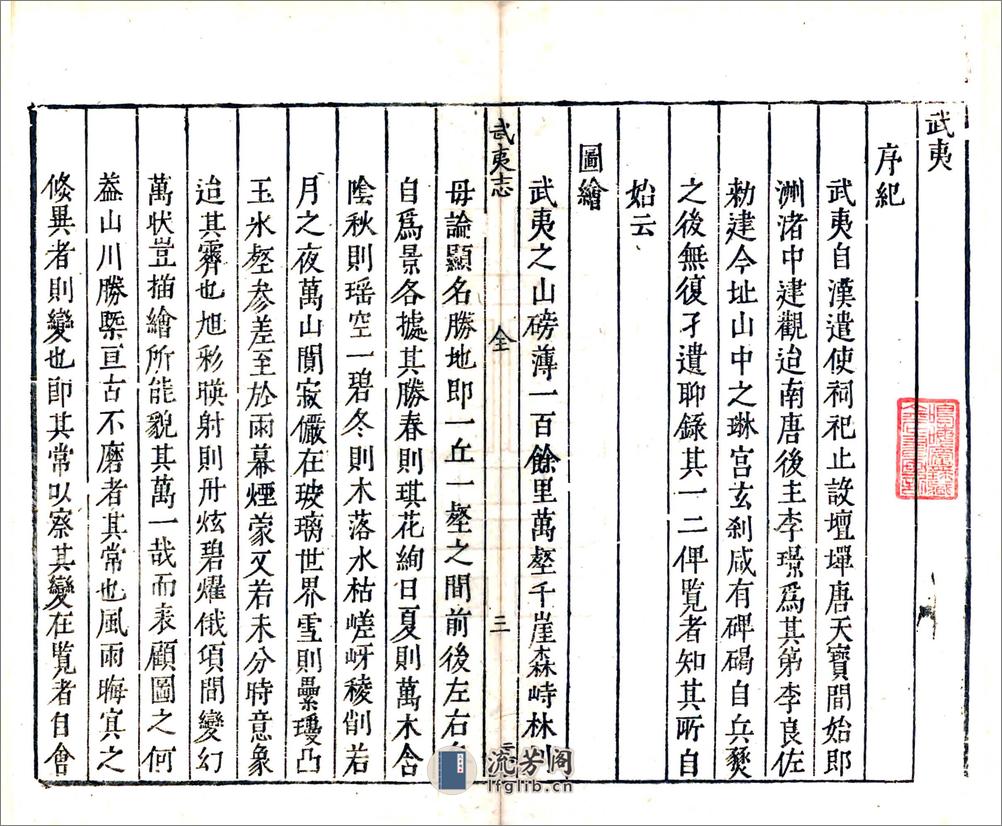 武夷
序紀
武夷自漢遣使祠祀止設壇墠唐天寶間始即
洲渚中建觀迨南唐後主李璟爲其第李良佐
勑建今址山中之琳宫玄刹咸有碑碣自兵燹
之後無復孑遺聊錄其一二俾覽者知其所自
始云
圖繪
武夷之山磅薄一百餘里萬壑千崖森峙林
毋論顯名勝地即一丘一壑之間前後左右
自爲景各據其勝春則琪花絢日夏則萬木含
武夷志 全 三
陰秋則瑶空一碧冬則木落水枯嵯岈稜削若
月之夜萬山閴寂儼在玻璃世界雪則纍瓊凸
玉氷壑参差至於雨幕煙蒙又若未分時意象
迨其霽也旭彩暎射則丹炫碧燿俄頃間變幻
萬状豈描繪所能貌其萬一哉而表顧圖之何
葢山川勝槩亘古不磨者其常也風雨晦冥之
倐異者則變也即其常以察其變在覽者自會
流芳阁
lfglib.cn